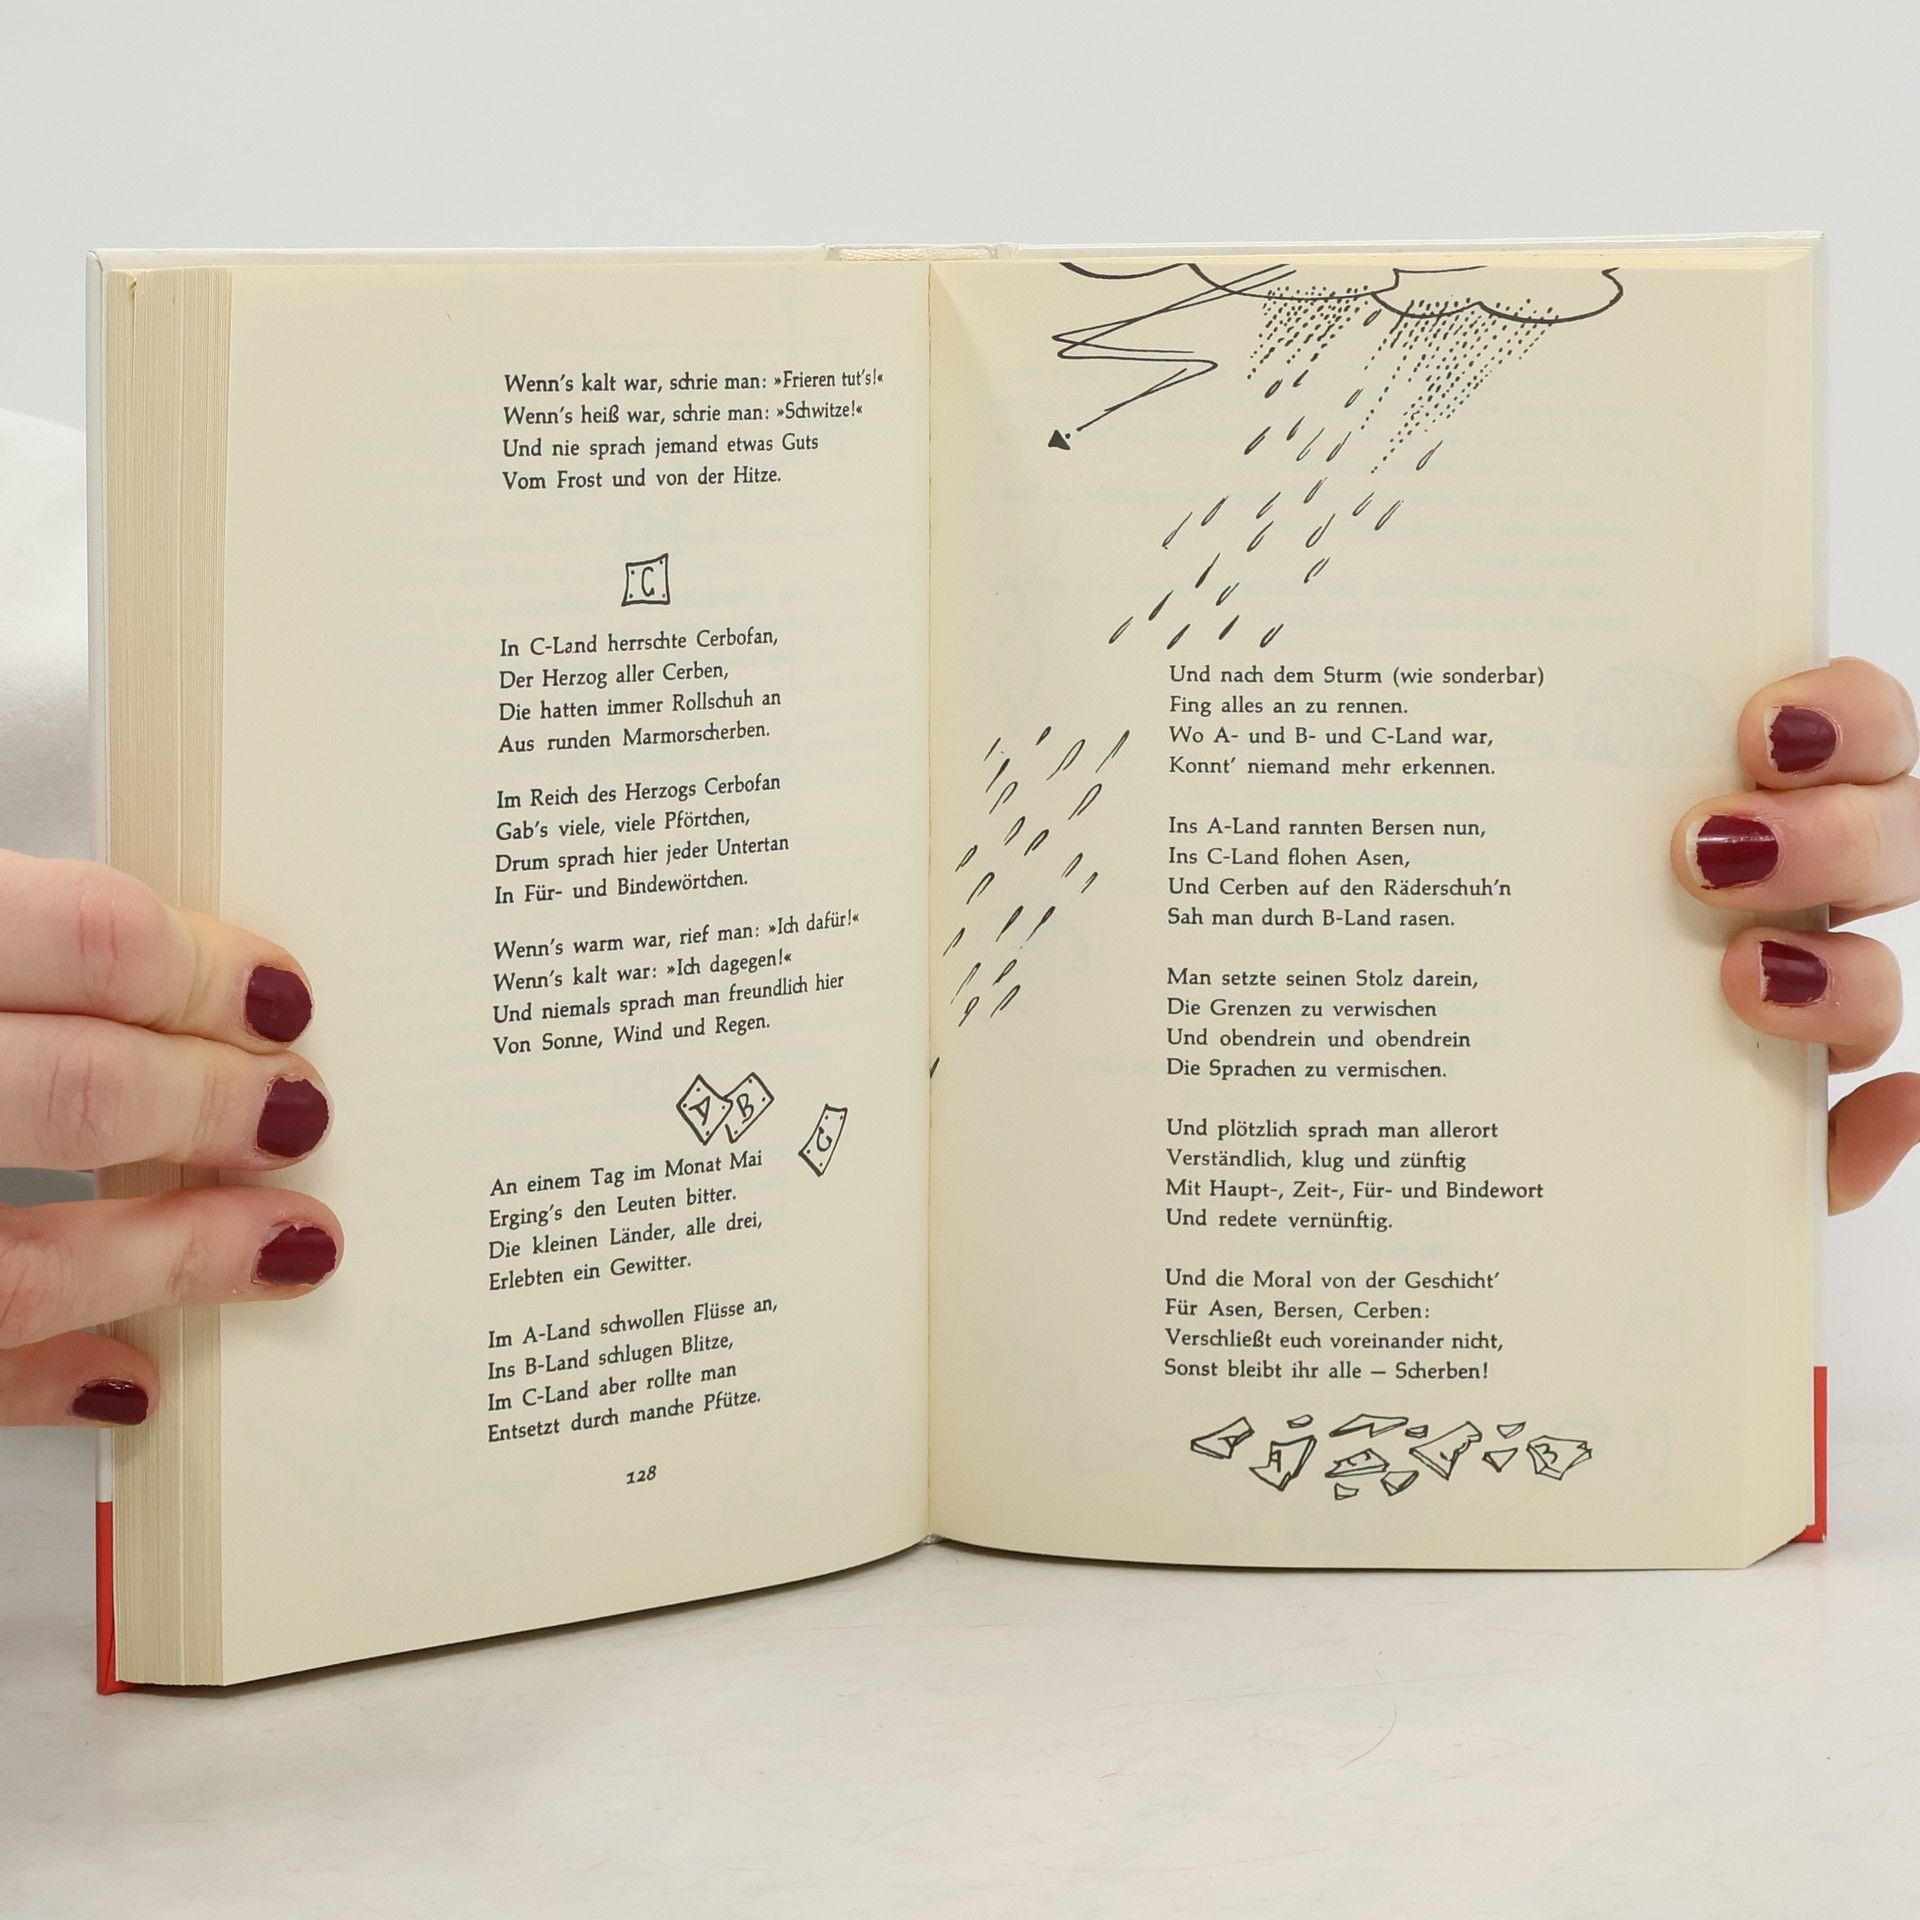 Wenn's kalt war, schrie man: »Frieren tut's!«
Wenn's heiß war, schrie man: »Schwitze!«
Und nie sprach jemand etwas Guts
Vom Frost und von der Hitze.
C
In C-Land herrschte Cerbofan,
Der Herzog aller Cerben,
Die hatten immer Rollschuh an
Aus runden Marmorscherben.
Im Reich des Herzogs Cerbofan
Gab's viele, viele Pförtchen,
Drum sprach hier jeder Untertan
In Für- und Bindewörtchen.
Wenn's warm war, rief man: »Ich dafür!«
Wenn's kalt war: »Ich dagegen!«
Und niemals sprach man freundlich hier
Von Sonne, Wind und Regen.
A B C
An einem Tag im Monat Mai
Erging's den Leuten bitter.
Die kleinen Länder, alle drei,
Erlebten ein Gewitter.
Im A-Land schwollen Flüsse an,
Ins B-Land schlugen Blitze,
Im C-Land aber rollte man
Entsetzt durch manche Pfütze.
128
Und nach dem Sturm (wie sonderbar)
Fing alles an zu rennen.
Wo A- und B- und C-Land war,
Konnt' niemand mehr erkennen.
Ins A-Land rannten Bersen nun,
Ins C-Land flohen Asen,
Und Cerben auf den Räderschuh'n
Sah man durch B-Land rasen.
Man setzte seinen Stolz darein,
Die Grenzen zu verwischen
Und obendrein und obendrein
Die Sprachen zu vermischen.
Und plötzlich sprach man allerort
Verständlich, klug und zünftig
Mit Haupt-, Zeit-, Für- und Bindewort
Und redete vernünftig.
Und die Moral von der Geschicht'
Für Asen, Bersen, Cerben:
Verschließt euch voreinander nicht,
Sonst bleibt ihr alle — Scherben!